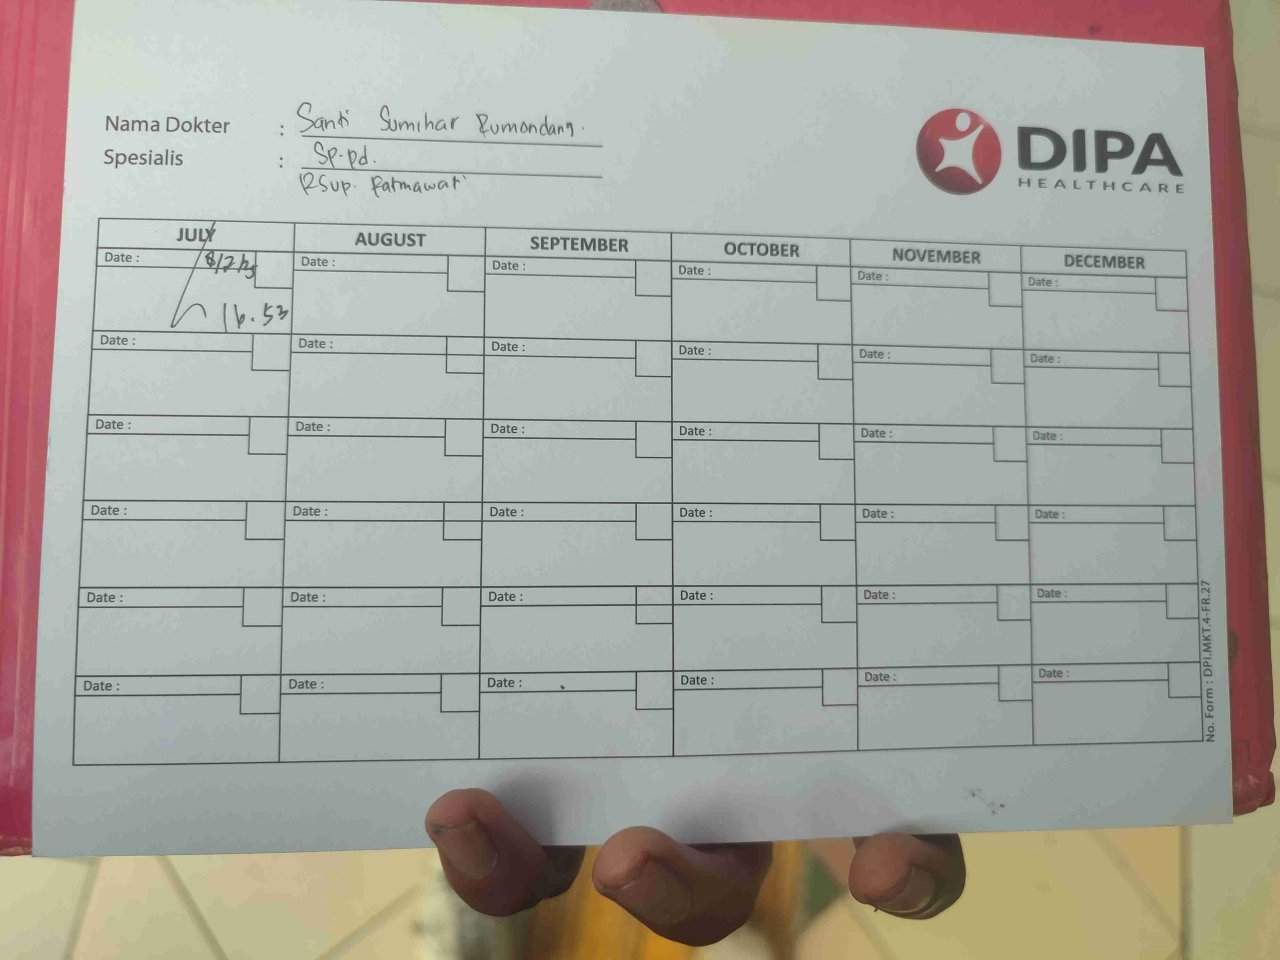 Nama Dokter : Santi Sumihar Rumondang.
Spesialis : Sp.pd.
RSup. Fatmawati
DIPA
HEALTHCARE
JULY AUGUST SEPTEMBER OCTOBER NOVEMBER DECEMBER
Date : Date : Date : Date : Date : Date :
16.53
Date : Date : Date : Date : Date : Date :
Date : Date : Date : Date : Date : Date :
Date : Date : Date : Date : Date : Date :
Date : Date : Date : Date : Date : Date :
Date : Date : Date : Date : Date : Date :
No. Form : DPI.MKT.4-FR.27